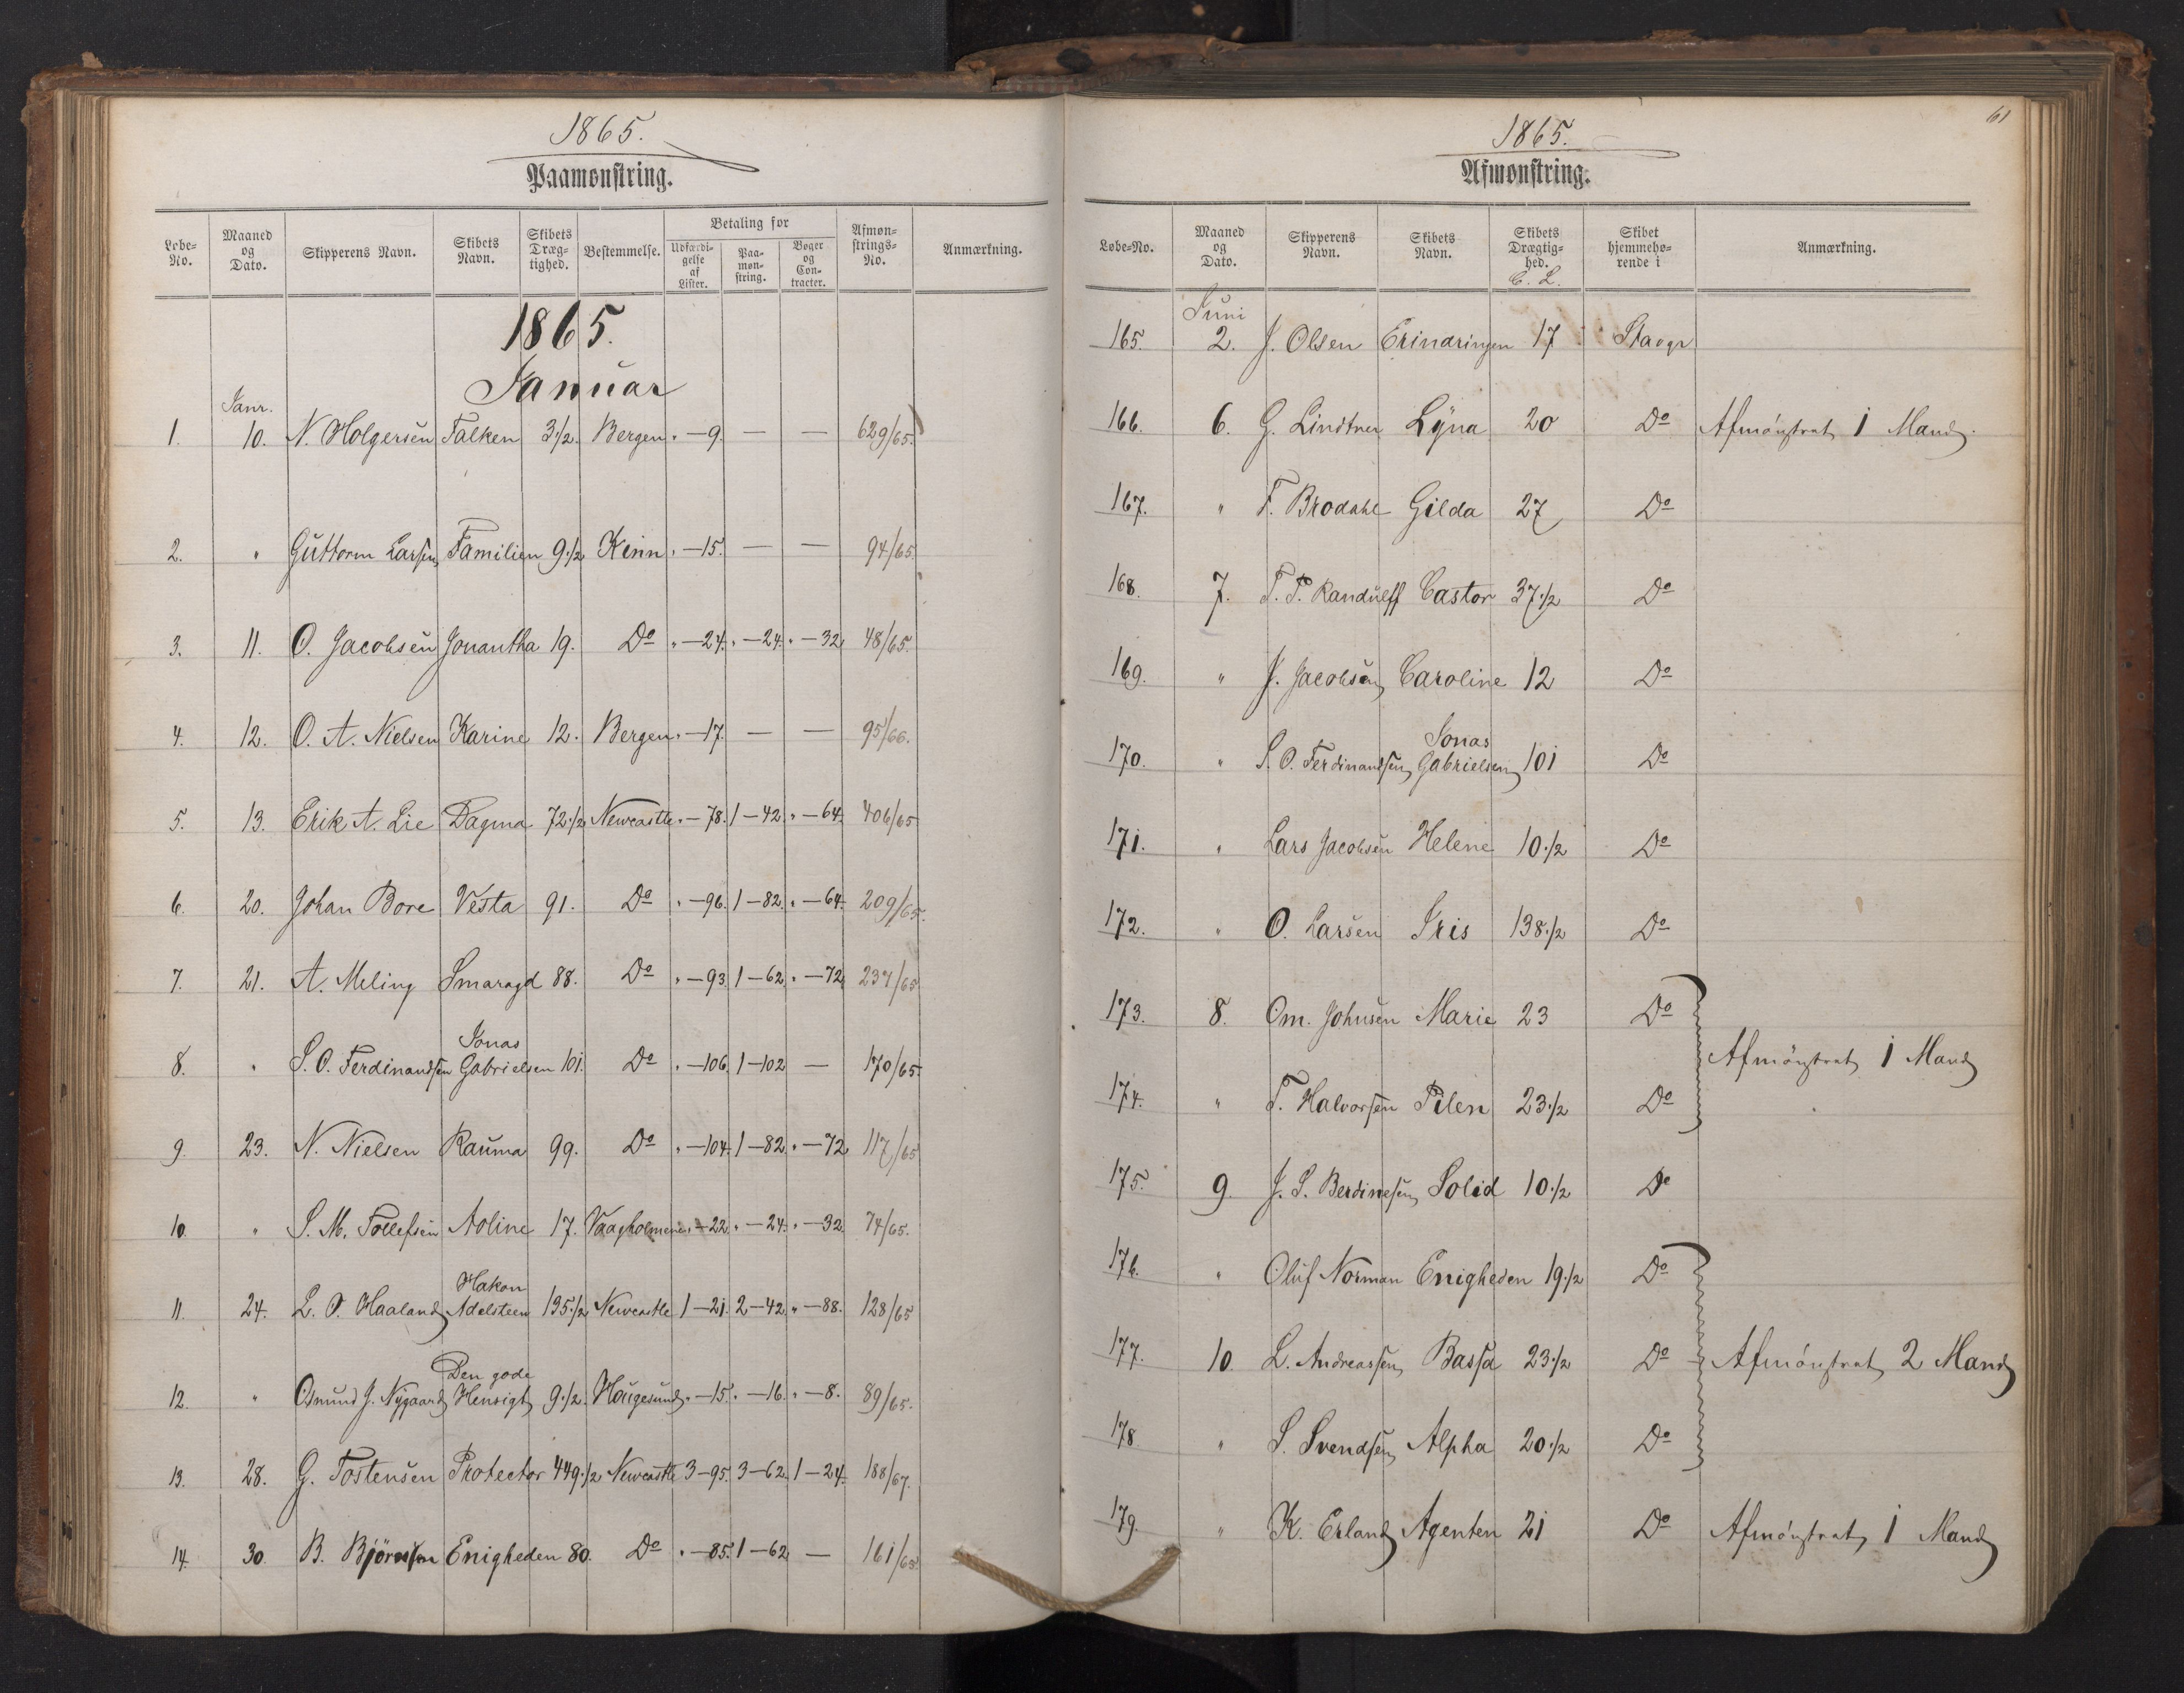 1865.
Paamønstring.
Løbe-No. Maaned og Dato. Skipperens Navn. Skibets Navn. Skibets Dræg-tighed. Bestemmelse. Betaling for Udfærdi-gelse af Lister. Paa-møn-string. Bøger og Con-tracter. Afmøn-strings-No. Anmærkning.
1865.
Januar
Janr.
1. 10. N. Holgersen Falken 3 1/2. Bergen " — 9. — — 629/65.
2. " Guttorm Larsen Familien 9 1/2 Kinn " — 15. — — 94/65.
3. 11. O. Jacobsen Jonantha 19. Do " — 24. " — 24. " — 32 48/65.
4. 12. O. A. Nielsen Karine 12. Bergen " — 17. — — 95/66.
5. 13. Erik A. Lie Dagma 72 1/2 Newcastle " — 78. 1 — 42. " — 64. 406/65
6. 20. Johan Bore Vesta 91. Do " — 96. 1 — 82. " — 64. 209/65.
7. 21. A. Meling Smaragd 88. Do " — 93 1 — 62. " — 72. 237/65
8. " S. O. Ferdinandsen Jonas Gabrielsen 101. Do " — 106. 1 — 102 — 170/65.
9. 23. N. Nielsen Rauma 99. Do " — 104. 1 — 82. " — 72 117/65
10. " S. M. Tollefsen Aoline 17. Vaagholmene " — 22. " — 24. " — 32. 74/65.
11. 24. L. O. Haaland Hakon Adelsteen 135 1/2 Newcastle 1 — 21. 2 — 42. " — 88. 128/65
12. " Osmund J. Nygaard Den gode Hensigt 9 1/2. Haugesund " — 15. " — 16. " — 8. 89/65.
13. 28. G. Tostensen Protector 449 1/2 Newcastle 3 — 95. 3 — 62. 1 — 24. 188/67.
14. 30. B. Bjørnsen Enigheden 80. Do " — 85. 1 — 62 — 161/65.
61
1865.
Afmønstring.
Løbe-No. Maaned og Dato. Skipperens Navn. Skibets Navn. Skibets Drægtig-hed. C. L. Skibet hjemmehø-rende i Anmærkning.
Juni
165. 2. J. Olsen Erindringen 17 Stavgr
166. 6. G. Lindtner Lyna 20 Do Afmønstrat 1 Mand.
167. " F. Brodahl Gilda 27 Do
168. 7. T. P. Randulff Castor 37 1/2 Do
169. " J. Jacobsen Caroline 12 Do
170. " S. O. Ferdinandsen Jonas Gabrielsen 101 Do
171. " Lars Jacobsen Helene 10 1/2 Do
172. " O. Larsen Iris 138 1/2 Do
173. 8. Om. Johnsen Marie 23 Do
Afmønstrat 1 Mand
174. " T. Halvorsen Pilen 23 1/2 Do
175. 9. J. S. Berdinesen Solid 10 1/2 Do
176. " Oluf Norman Enigheden 19 1/2 Do
177. 10. L. Andreassen Bassa 23 1/2 Do Afmønstrat 2 Mand
178. " S. Svendsen Alpha 20 1/2 Do
179. " K. Erland Agenten 21 Do Afmønstrat 1 Mand